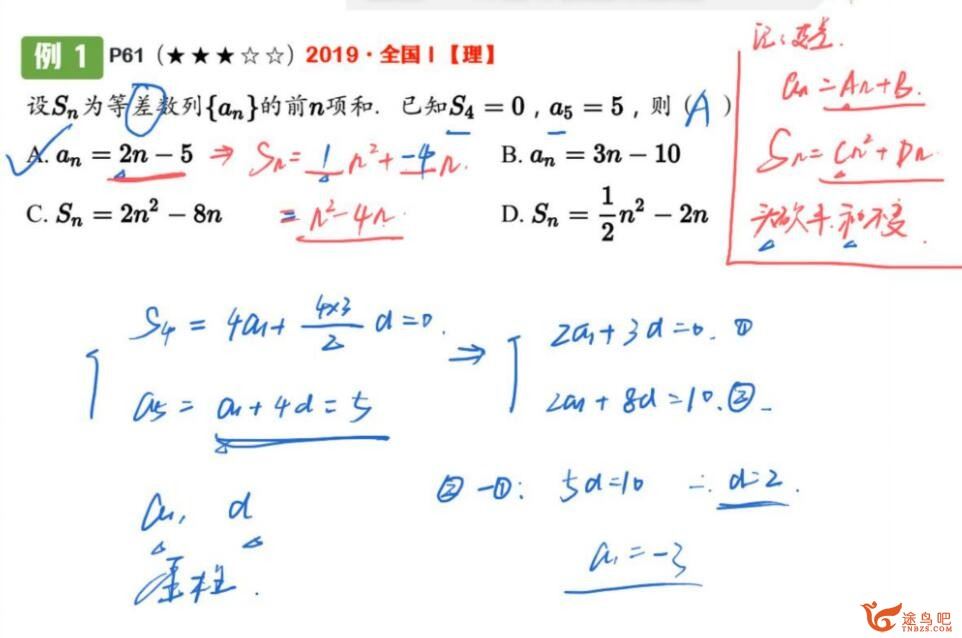 例 1 P61 (★★★☆☆) 2019·全国Ⅰ【理】
设Sₙ为等差数列{aₙ}的前n项和. 已知S₄ = 0, a₅ = 5, 则 ( A )
A. aₙ = 2n − 5 ⇒ Sₙ = 1 n² + −4 n.
B. aₙ = 3n − 10
C. Sₙ = 2n² − 8n
= n² − 4n.
D. Sₙ = 1/2 n² − 2n
aₙ = An + B.
Sₙ = Cn² + Dn
头砍半.和不变.
S₄ = 4a₁ + 4×3/2 d = 0.
a₅ = a₁ + 4d = 5
⇒
2a₁ + 3d = 0. ①
2a₁ + 8d = 10. ②
② − ①: 5d = 10 ∴ d = 2.
a₁, d
a₁ = −3
途鸟吧
TNBZS.COM